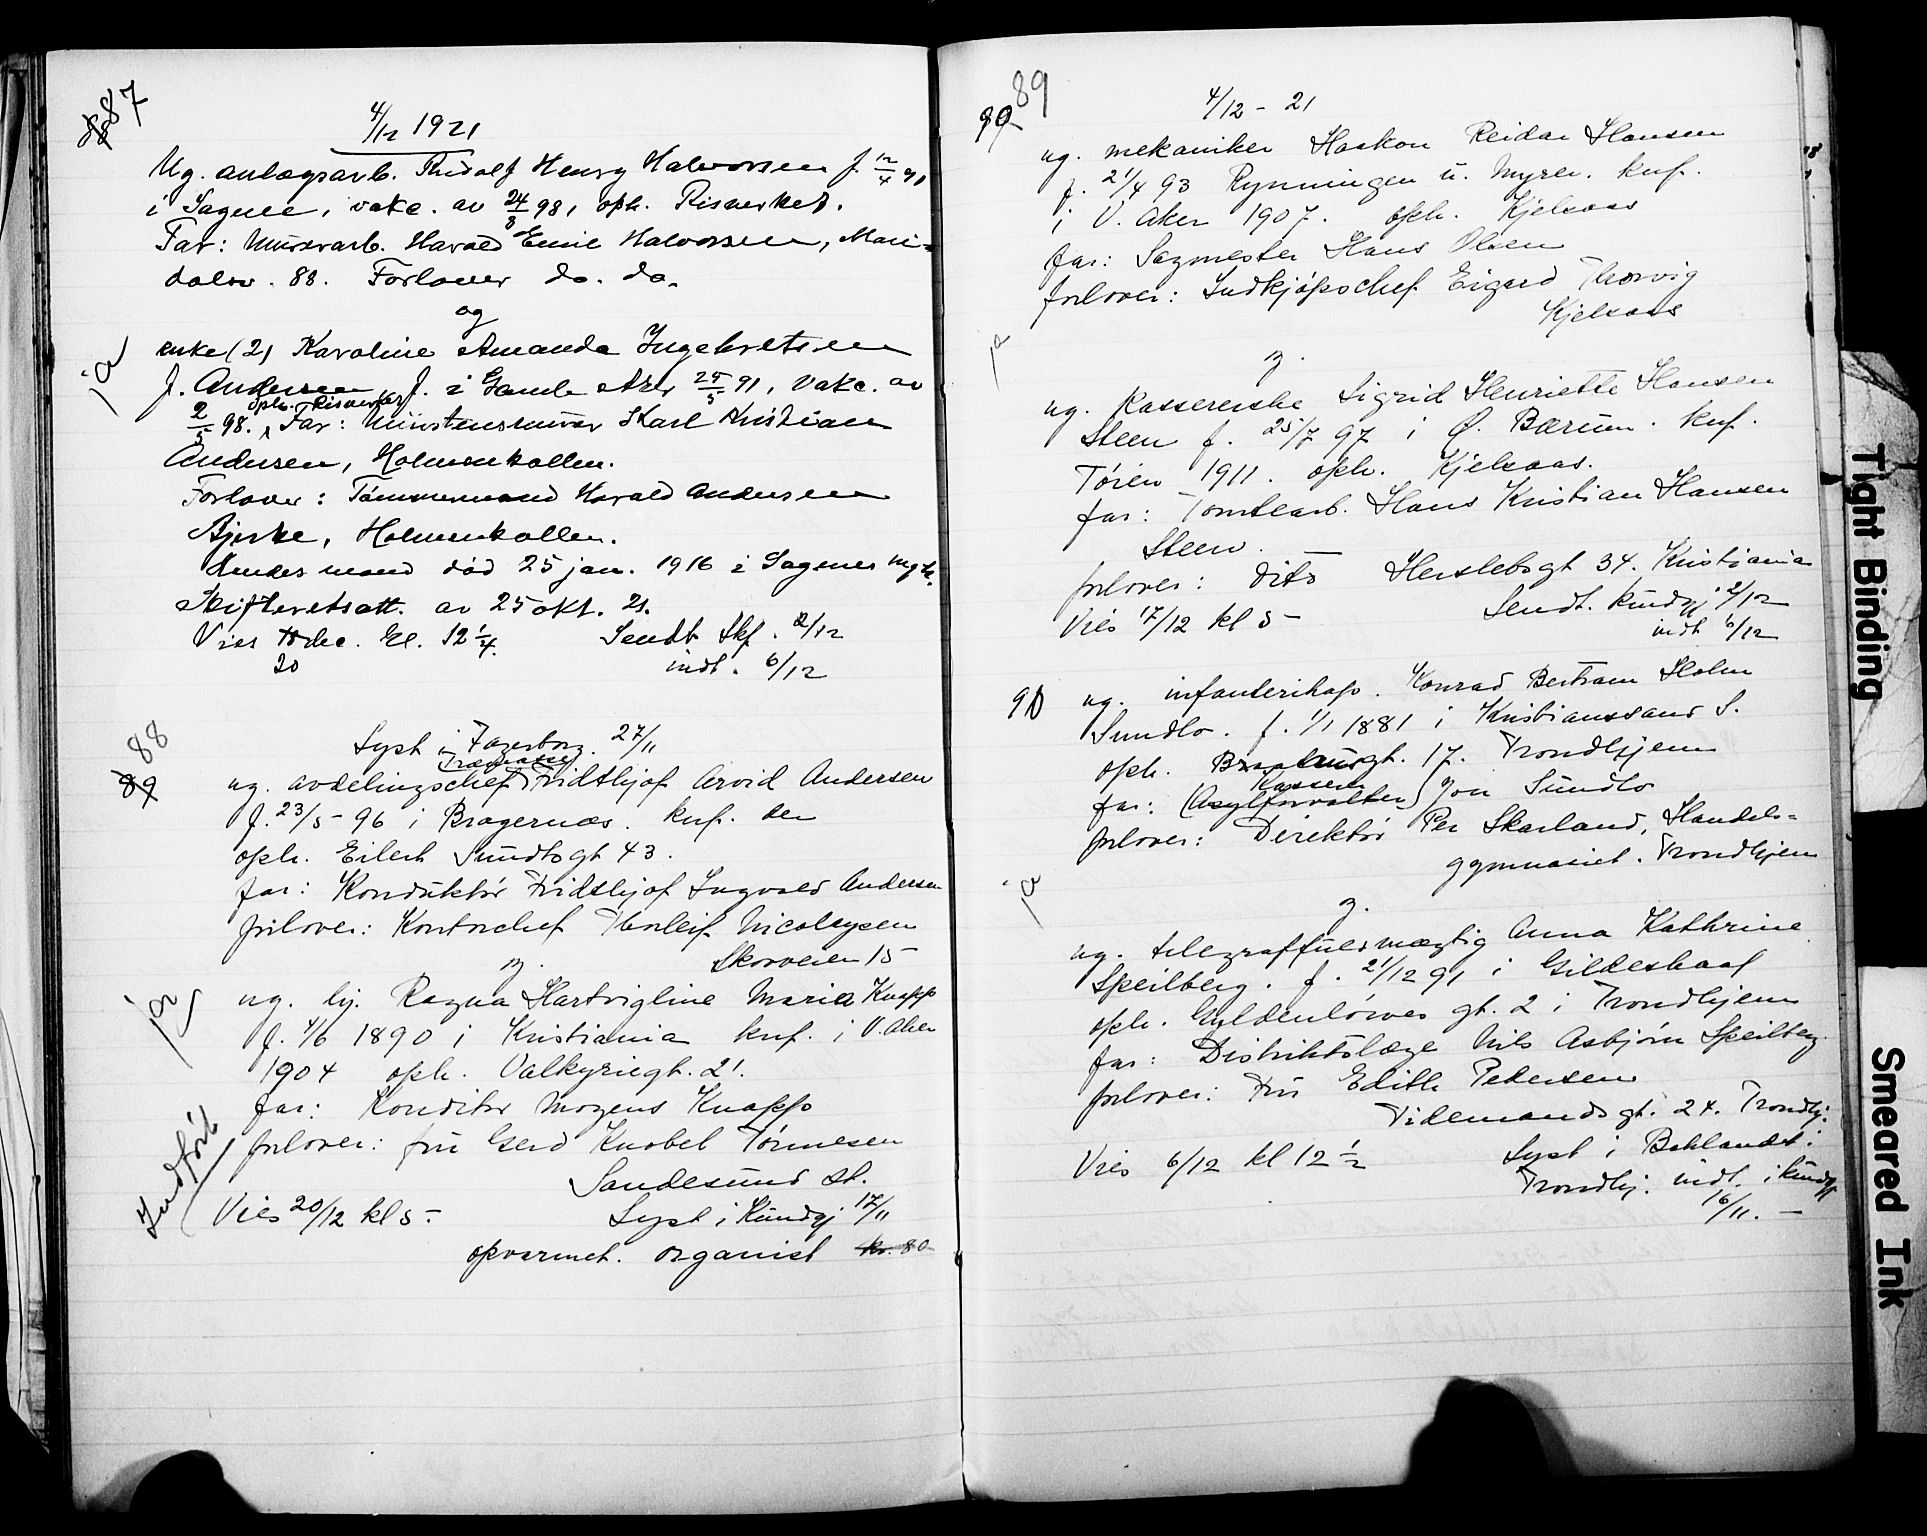 87
4/12 1921
Ug. anlægsarb. Rudolf Henry Halvorsen f. 12/4 91
i Sagene, vakc. av 24/8 98, oph. Risverket.
Far: Murerarb. Harald Emil Halvorsen, Mari-
dalsv. 88. Forlover do. do.
og
enke (2) Karoline Amanda Ingebretsen
ja
f. Andersen, f. i Gamle Aker 25/5 91, vakc. av
oph. Risverket
2/5 98. Far: Murstensmurer Karl Kristian
Andersen, Holmenkollen.
Forlover: Tømmermand Harald Andersen
Bjerke, Holmenkollen.
Hendes mand død 25 jan. 1916 i Sagenes mgh.
Skifteretsatt. av 25 okt. 21.
Vies dec. Kl. 12 1/4. Sendt Skf. 2/12
20 indt. 6/12
88
Lyst i Fagerborg 27/11
89
ug. avdelingschef Fridthjof Arvid Andersen
f. 23/5 - 96 i Bragernæs. knf. der
oph. Eilert Sundtsgt 43.
far: Konduktør Fridthjof Ingvald Andersen
forlover: Kontorchef Thorleif Nicolaysen
Skovveien 15
og.
ja
ug. hj. Ragna Hartvigline Maria Knapp
f. 4/6 1890 i Kristiania knf. i V. Aker
1904 oph. Valkyriegt. 21.
far: Konditor Mogens Knapp
forlover: fru Gerd Knobel Tønnesen
Sandesund st.
Indført
Vies 20/12 kl 5 - Lyst i Kundgj 17/11
opvarmet. organist kr. 80
89
90
4/12 - 21
ug. mekaniker Haakon Reidar Hansen
f. 21/4 93 Rynningen u. Myrer. knf.
i V. Aker 1907. oph. Kjelsaas
far: Sagmester Hans Olsen
forlover: Indkjøpschef Eigard Thorvig
Kjelsaas
ja
og.
ug. Kassererske Sigrid Henriette Hansen
Steen f. 25/7 97 i Ø. Bærum. knf.
Tøien 1911. oph. Kjelsaas.
far: Tomtearb. Hans Kristian Hansen
Steen.
forlover: dito Herslebsgt 34. Kristiania
Vies 17/12 kl 5 - Sendt. kundgj 2/12
indt 6/12
90 ug. infanterikap. Konrad Bertram Holm
Sundlo. f. 1/1 1881 i Kristianssand S.
oph. gt. 17. Trondhjem
Kasserer
far: (Asylforvalter) Jon Sundlo
forlover: Direktør Per Skarland, Handels-
gymnasiet. Trondhjem
ja
og.
ug. telegraffuldmægtig Anna Kathrine
Speilberg. f. 21/12 91 i Gildeskaal
oph. Gyldenløwes gt. 2 i Trondhjem
far: Distriktslæge Nils Asbjørn Speilberg.
forlover: Fru Edith Pedersen
Tidemands gt. 24. Trondhj.
Vies 6/12 kl 12 1/2 Lyst i Baklandet i
Trondhj. indt. i kundgj
16/11. -
Tight Binding
Smeared Ink